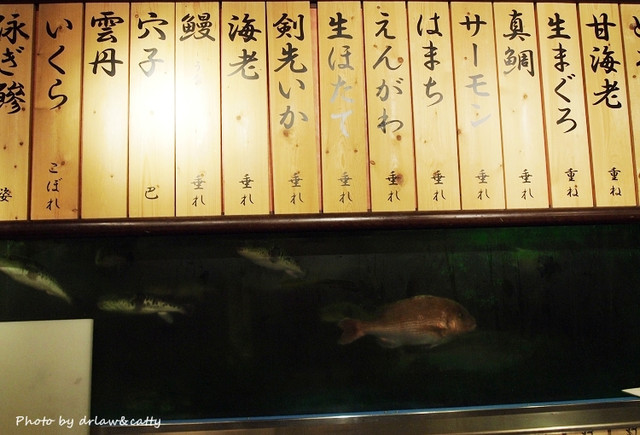 甘海老 重ね
生まぐろ 重ね
真鯛 垂れ
サーモン 垂れ
はまち 垂れ
えんがわ 垂れ
生ほたて 垂れ
剣先いか 垂れ
海老 垂れ
鰻 垂れ
穴子 巴
雲丹
いくら こぼれ
泳ぎ鯵 姿
Photo by drlaw&catty